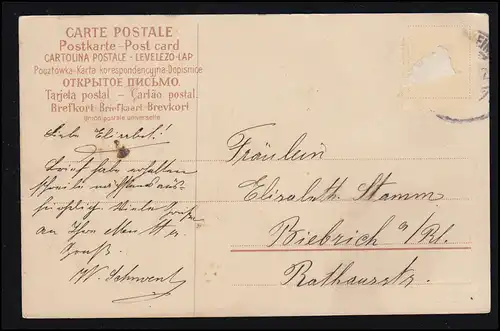 CARTE POSTALE
Postkarte - Post card
CARTOLINA POSTALE - LEVELEZŐ-LAP
Pocztówka - Karta korespondencyjna - Dopisnice
ОТКРЫТОЕ ПИСЬМО.
Tarjeta postal — Cartão postal.
Brefkort - Briefkaart - Brevkort
Union postale universelle
Liebe Elisabet!
Brief habe erhalten
schreibe nächstens aus-
führlich. Viele Grüße
an Ihre
Gruß
W. Schwent
Fräulein
Elisabeth Stamm
Biebrich a/Rh.
Rathausstr.